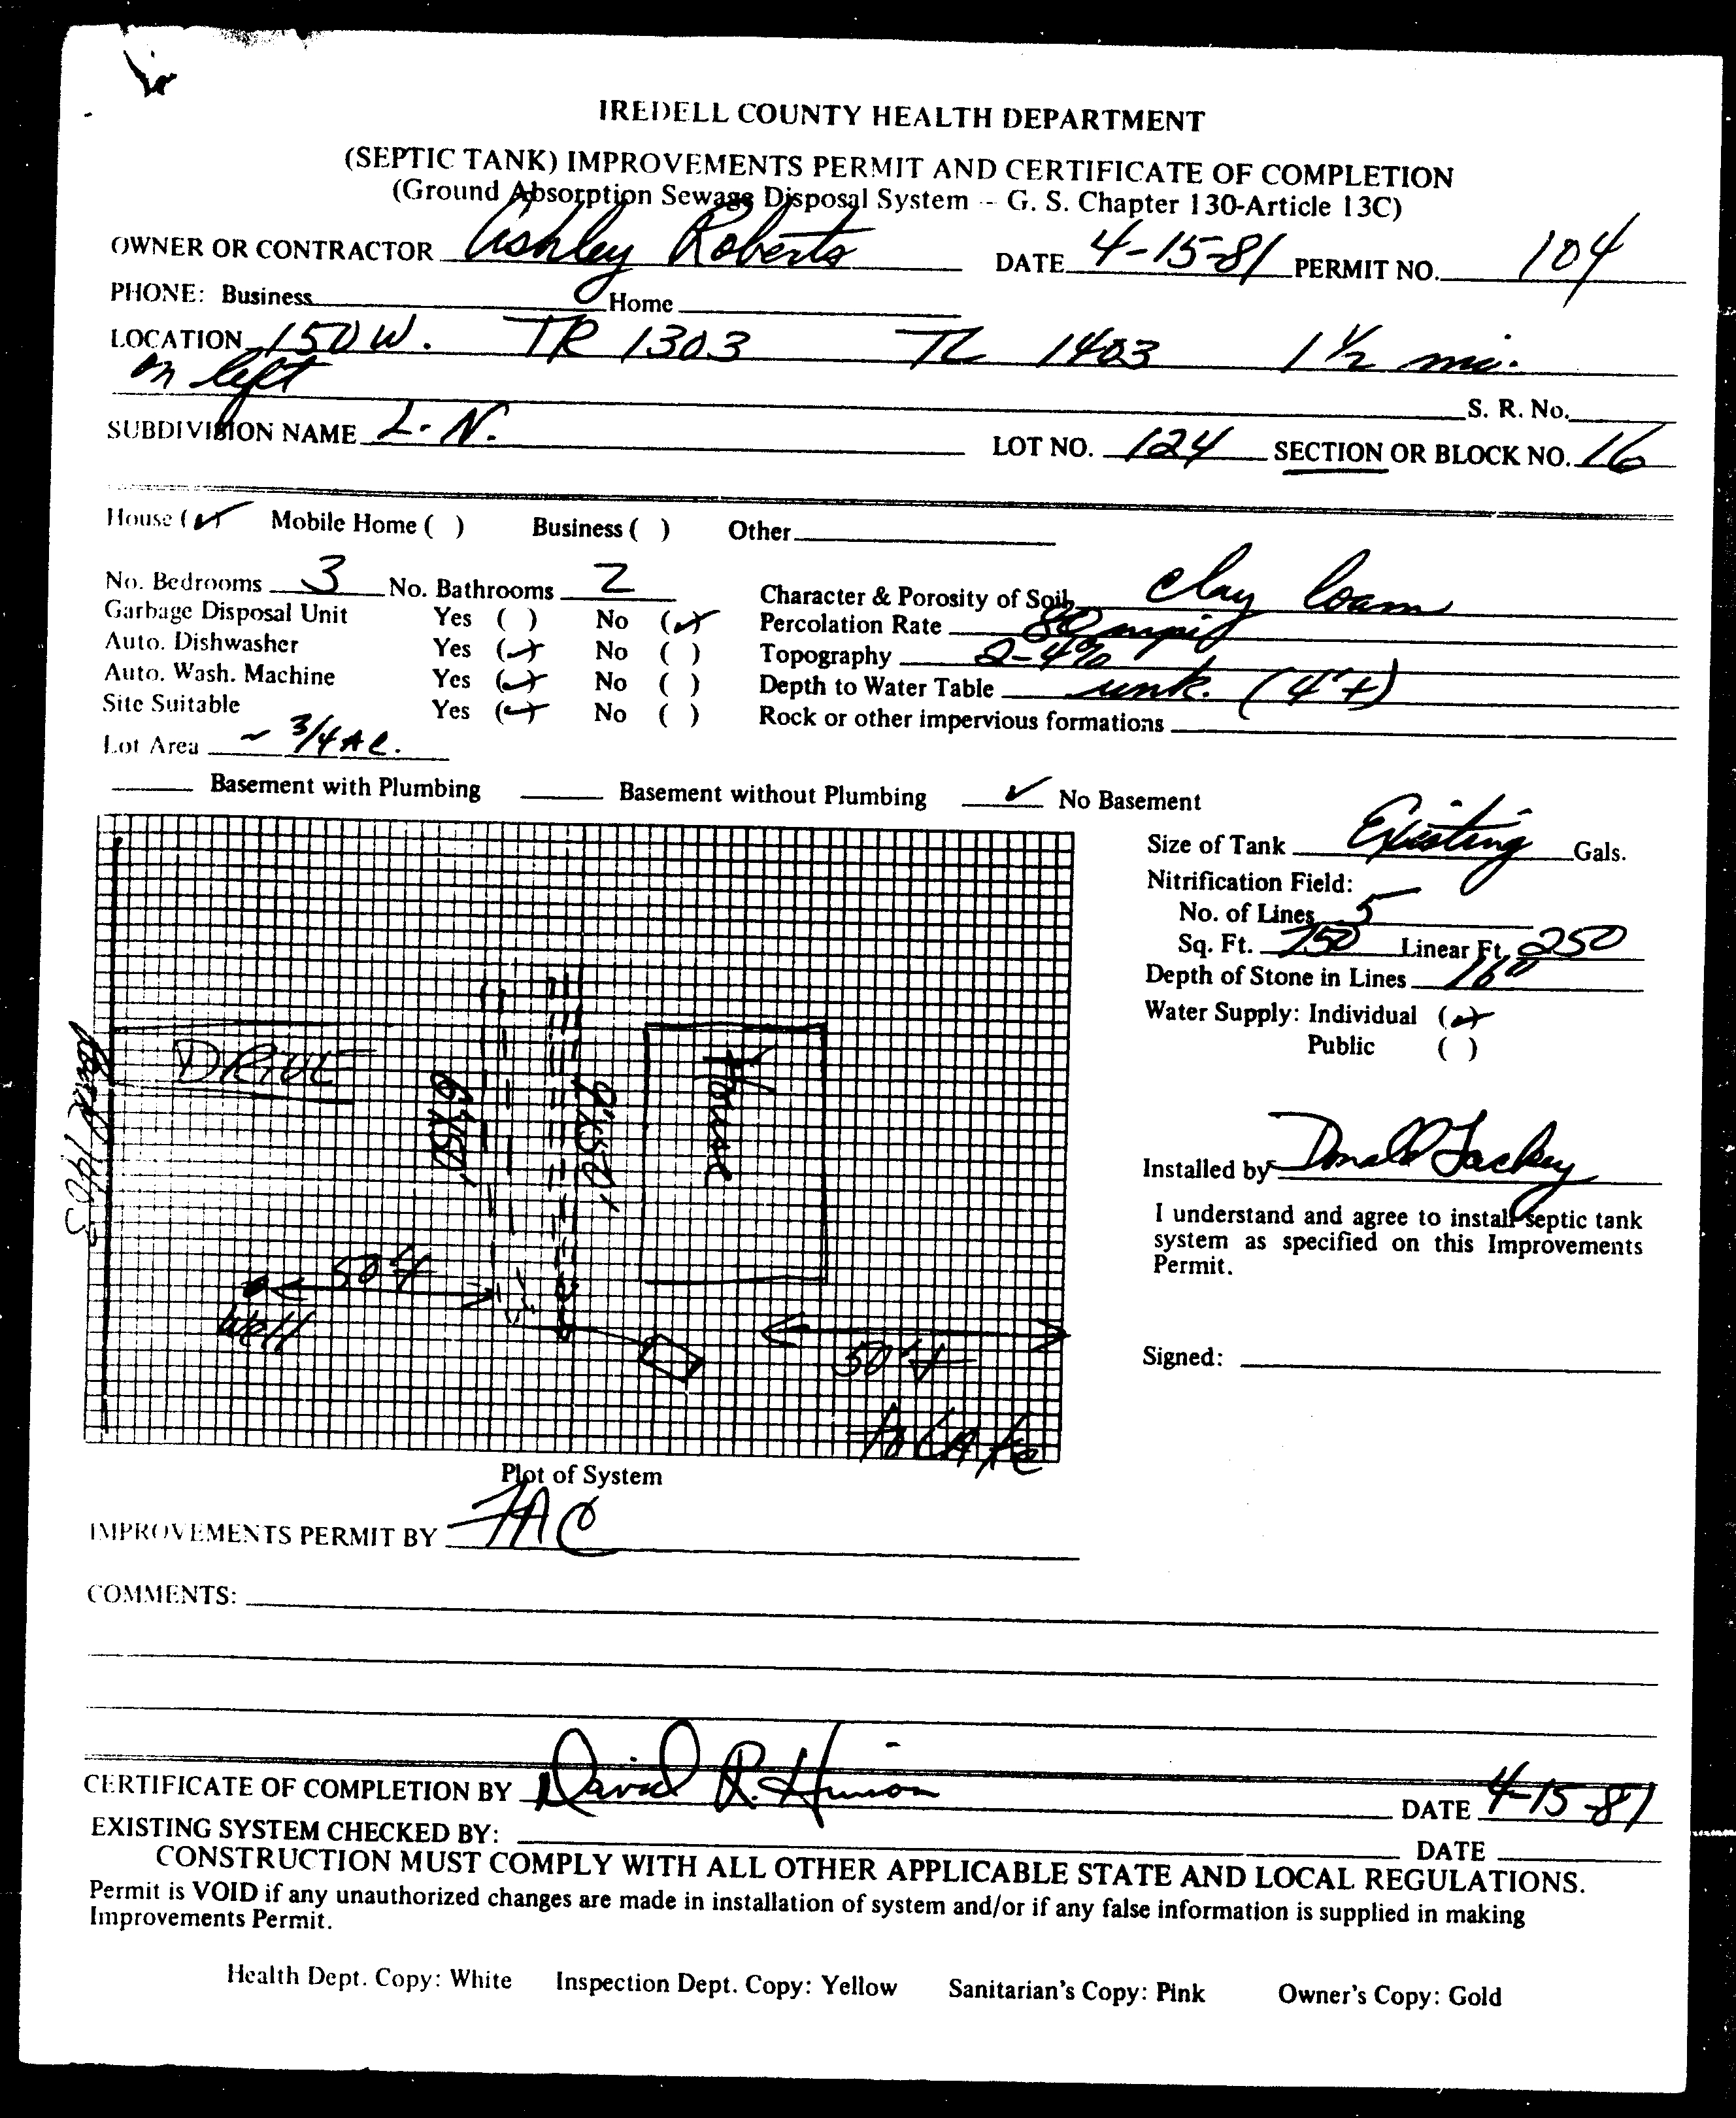 IREDELL COUNTY HEALTH DEPARTMENT
(SEPTIC TANK) IMPROVEMENTS PERMIT AND CERTIFICATE OF COMPLETION
(Ground Absorption Sewage Disposal System -- G. S. Chapter 130-Article 13C)
OWNER OR CONTRACTOR Ashley Roberts DATE 4-15-81 PERMIT NO. 104
PHONE: Business Home
LOCATION 150 W. TR 1303 TL 1403 1 1/2 mi.
on left
S. R. No.
SUBDIVISION NAME L. N. LOT NO. 124 SECTION OR BLOCK NO. 16
House (✓) Mobile Home ( ) Business ( ) Other
No. Bedrooms 3 No. Bathrooms 2 Character & Porosity of Soil clay loam
Garbage Disposal Unit Yes ( ) No (✓) Percolation Rate 80 mpi
Auto. Dishwasher Yes (✓) No ( ) Topography 2-4%
Auto. Wash. Machine Yes (✓) No ( ) Depth to Water Table unk. (4'+)
Site Suitable Yes (✓) No ( ) Rock or other impervious formations
Lot Area ~ 3/4 AC.
Basement with Plumbing Basement without Plumbing ✓ No Basement
Size of Tank Existing Gals.
Nitrification Field:
No. of Lines 5
Sq. Ft. 750 Linear Ft. 250
Depth of Stone in Lines 16"
Water Supply: Individual (✓)
Public ( )
DRIVE
House
1403
50'+
Well
50'+
to Lake
Installed by Donald Lackey
I understand and agree to install septic tank
system as specified on this Improvements
Permit.
Signed:
Plot of System
IMPROVEMENTS PERMIT BY FAC
COMMENTS:
CERTIFICATE OF COMPLETION BY David R. Hinson DATE 4-15-81
EXISTING SYSTEM CHECKED BY: DATE
CONSTRUCTION MUST COMPLY WITH ALL OTHER APPLICABLE STATE AND LOCAL REGULATIONS.
Permit is VOID if any unauthorized changes are made in installation of system and/or if any false information is supplied in making
Improvements Permit.
Health Dept. Copy: White Inspection Dept. Copy: Yellow Sanitarian's Copy: Pink Owner's Copy: Gold